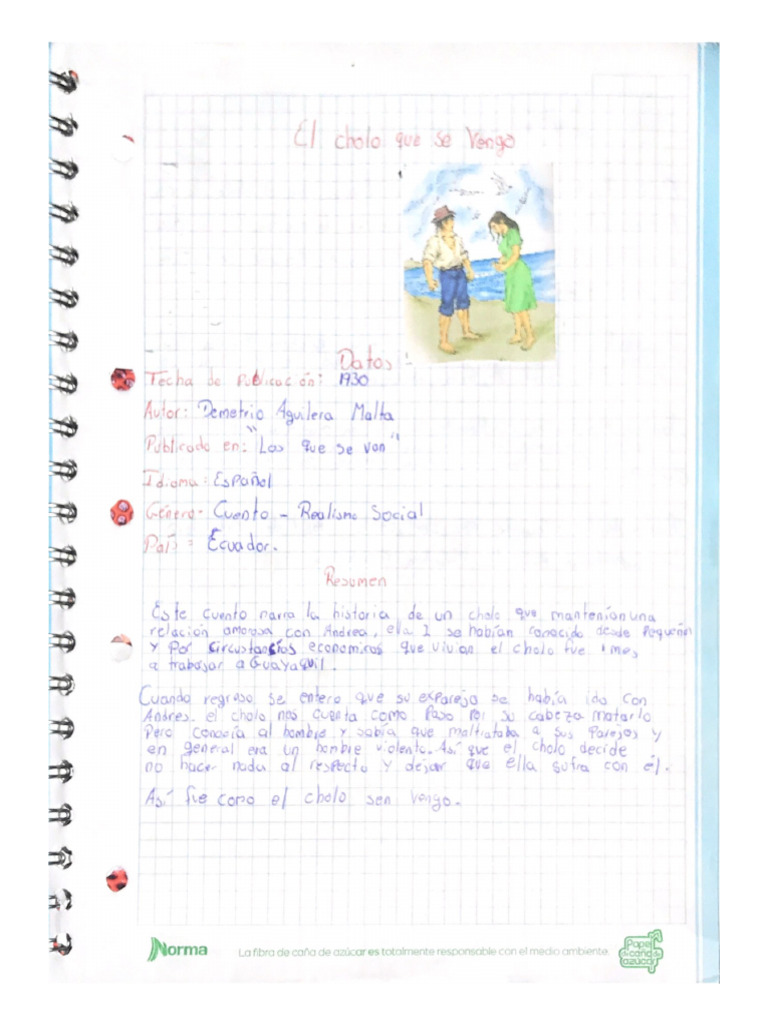 El cholo que se Vengo
Datos
Fecha de Publicación: 1930
Autor: Demetrio Aguilera Malta
Publicado en: "Los que se van"
Idioma: Español
Género- Cuento - Realismo Social
País: Ecuador.
Resumen
Este cuento narra la historia de un cholo que mantenían una
relación amorosa con Andrea, ella 2 se habían conocido desde pequeños
y por circustancías economicas que vivian el cholo fue 1 mes
a trabajar a Guayaquil.
Cuando regreso se entero que su expareja se había ido con
Andres. el cholo nos cuenta como paso por su cabeza matarlo
Pero conocía al hombre y sabía que maltrataba a sus parejas y
en general era un hombre violento. Así que el cholo decide
no hacer nada al respecto y dejar que ella sufra con él.
Así fue como el cholo sen vengo.
Norma
La fibra de caña de azúcar es totalmente responsable con el medio ambiente.
Papel
de caña de
azúcar